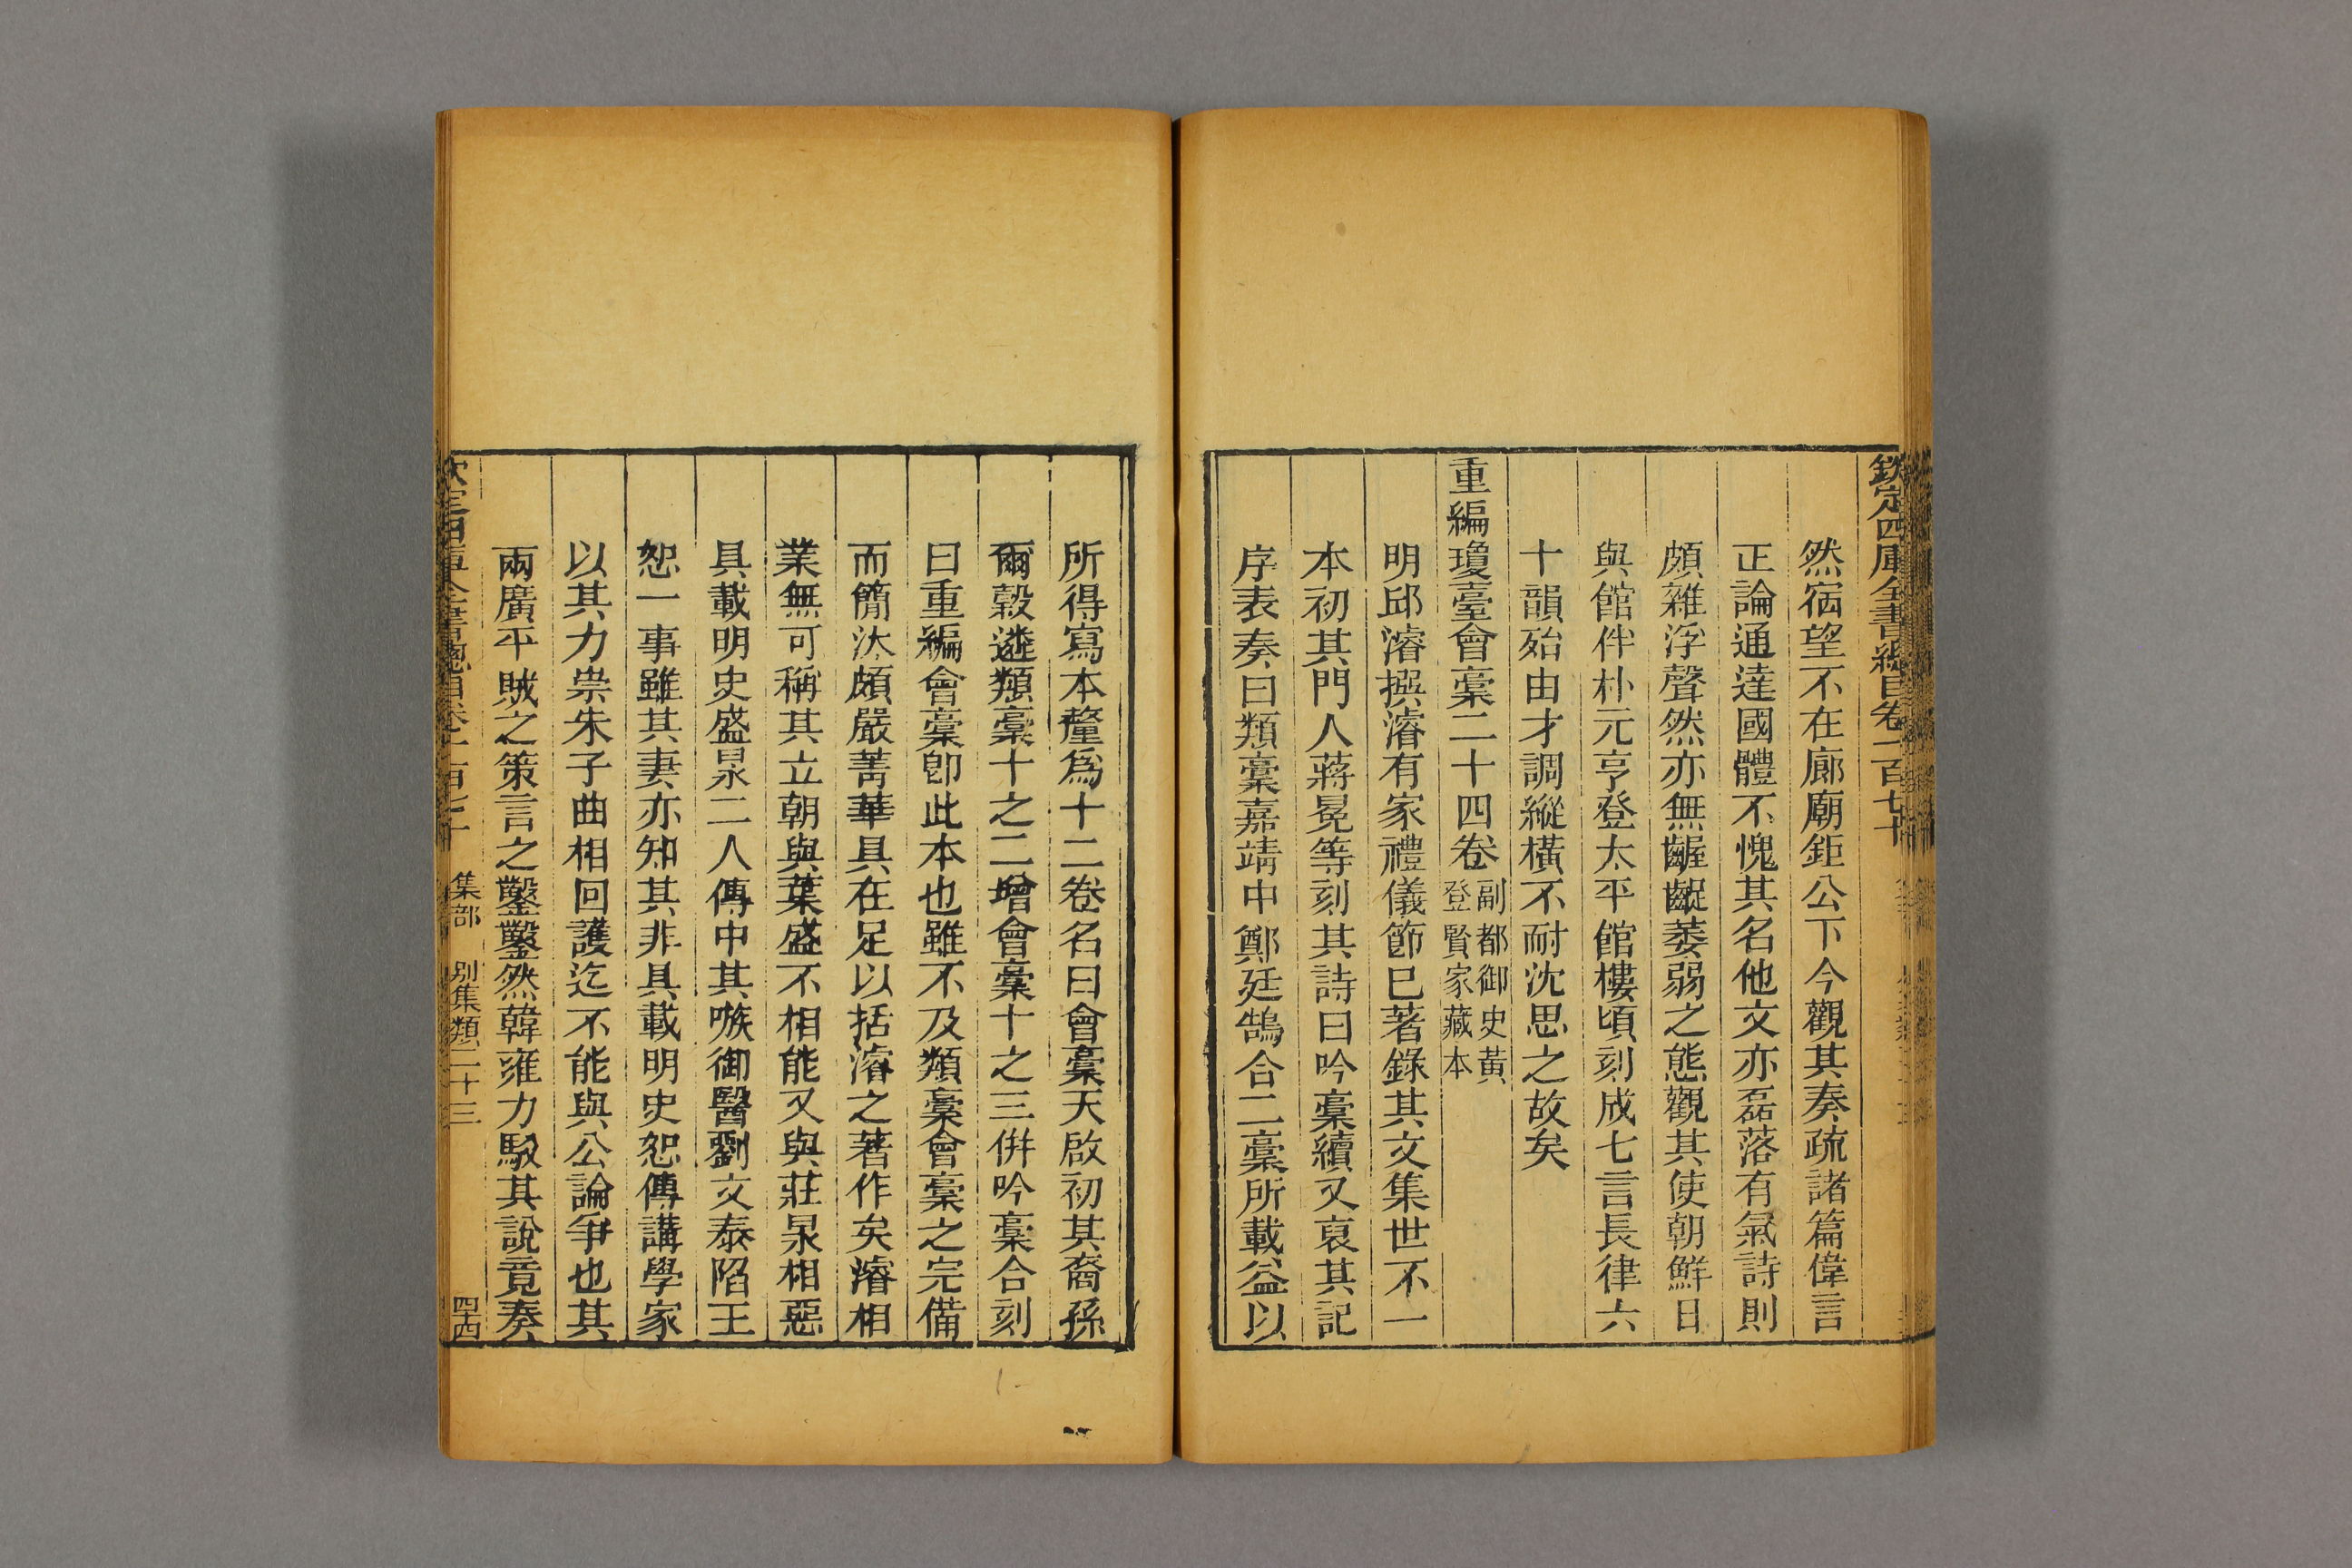 欽定四庫全書總目卷一百七十
然宿望不在廊廟鉅公下今觀其奏疏諸篇偉言
正論通達國體不愧其名他文亦磊落有氣詩則
頗雜浮聲然亦無齷齪萎弱之態觀其使朝鮮日
與館伴朴元亨登太平館樓頃刻成七言長律六
十韻殆由才調縱橫不耐沈思之故矣
重編瓊臺會稾二十四卷
副都御史黃
登賢家藏本
明邱濬撰濬有家禮儀節已著錄其文集世不一
本初其門人蔣冕等刻其詩曰吟稾續又裒其記
序表奏曰類稾嘉靖中鄭廷鵠合二稾所載益以
所得寫本釐爲十二卷名曰會稾天啟初其裔孫
爾穀遴類稾十之二增會稾十之三倂吟稾合刻
曰重編會稾卽此本也雖不及類稾會稾之完備
而簡汰頗嚴菁華具在足以括濬之著作矣濬相
業無可稱其立朝與葉盛不相能又與莊㫤相惡
具載明史盛㫤二人傳中其嗾御醫劉文泰陷王
恕一事雖其妻亦知其非具載明史恕傳講學家
以其力崇朱子曲相回護迄不能與公論爭也其
兩廣平賊之策言之鑿鑿然韓雍力駁其說竟奏
欽定四庫全書總目卷一百七十 集部 別集類二十三 四西